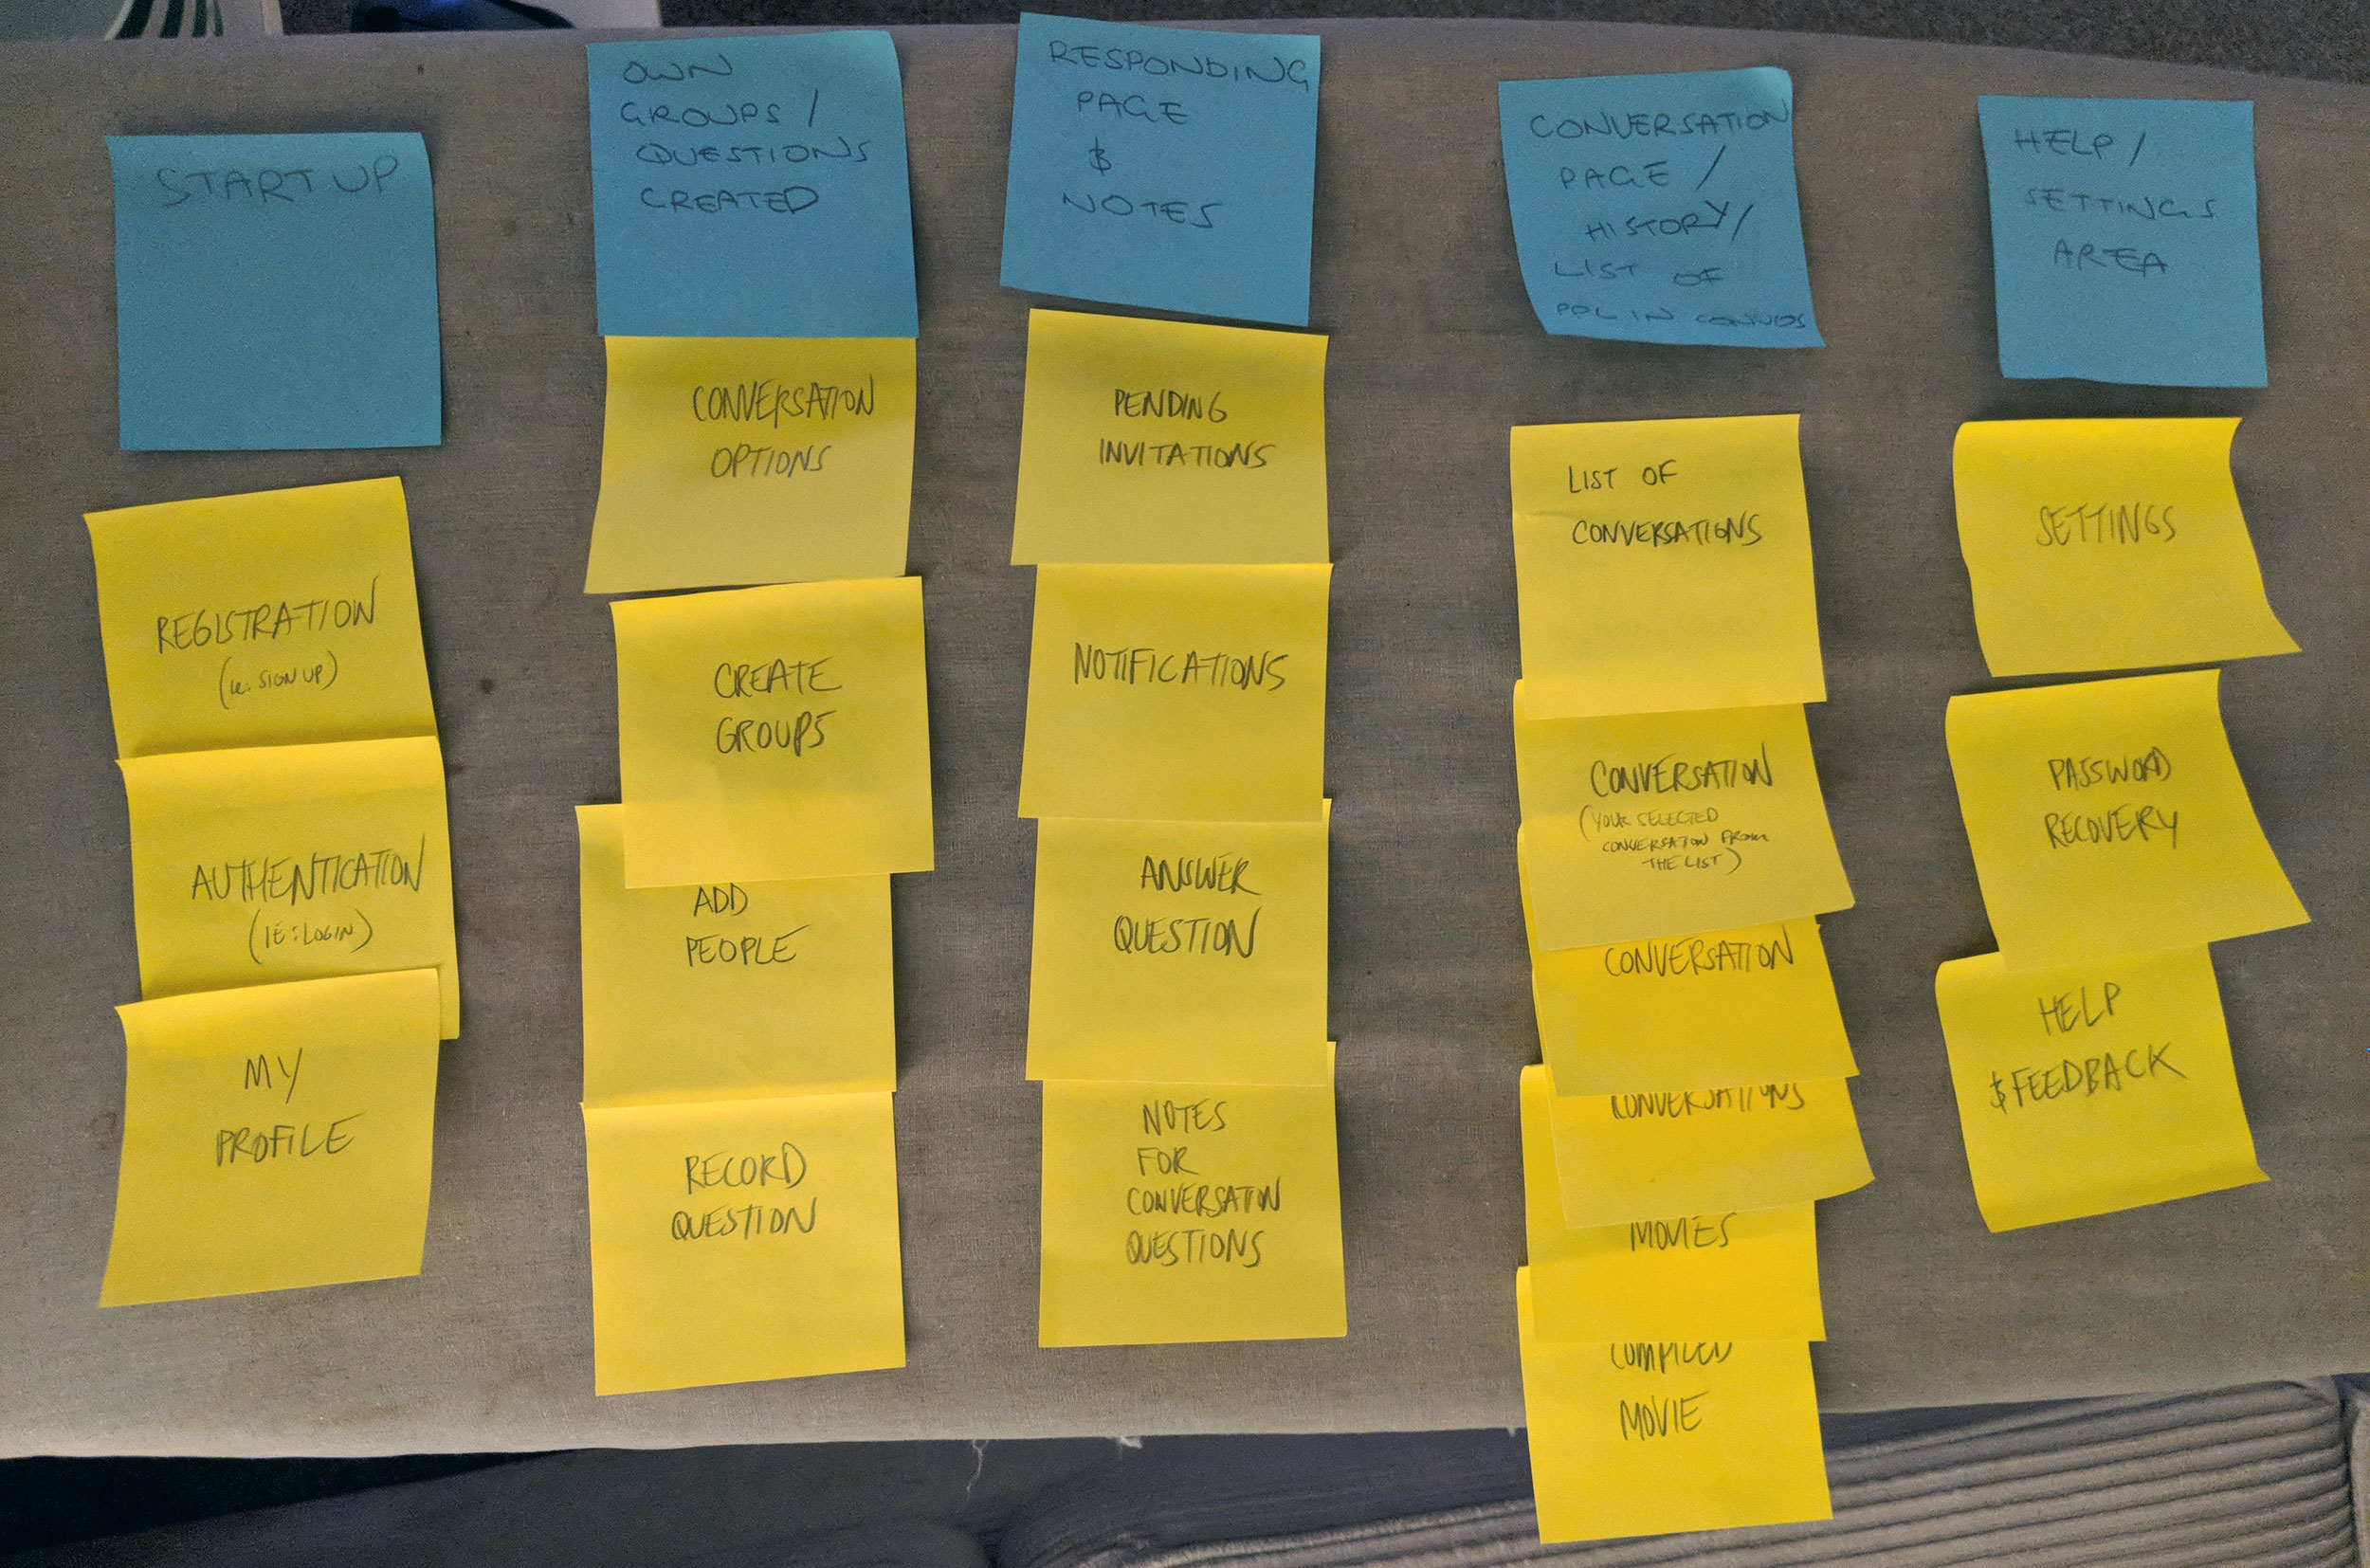 START UP
REGISTRATION
(ie: SIGN UP)
AUTHENTICATION
(IE: LOGIN)
MY
PROFILE
OWN
GROUPS /
QUESTIONS
CREATED
CONVERSATION
OPTIONS
CREATE
GROUPS
ADD
PEOPLE
RECORD
QUESTION
RESPONDING
PAGE
&
NOTES
PENDING
INVITATIONS
NOTIFICATIONS
ANSWER
QUESTION
NOTES
FOR
CONVERSATION
QUESTIONS
CONVERSATION
PAGE /
HISTORY/
LIST OF
PPL IN CONVOS
LIST OF
CONVERSATIONS
CONVERSATION
(YOUR SELECTED
CONVERSATON FROM
THE LIST)
CONVERSATION
CONVERSATIONS
MOVIES
COMPILED
MOVIE
HELP /
SETTINGS
AREA
SETTINGS
PASSWORD
RECOVERY
HELP
& FEEDBACK